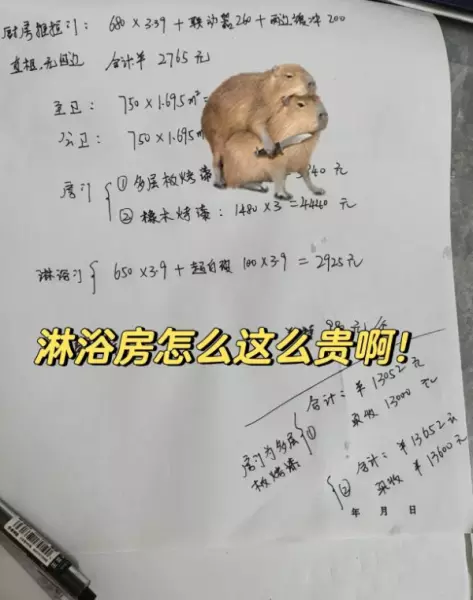 厨房推拉门：680×3.39+联动器260+两边缓冲200
合计￥2765元
主卫：750×1.695m²=
公卫：750×1.695m²
房门 ①多层板烤漆 40元
②橡木烤漆：1480×3=4440元
淋浴门 650×3.9+超白玻100×3.9=2925元
淋浴房怎么这么贵啊！
合计：￥13052元
实收 13000元
房门为多层板烤漆 ①
② 合计：￥13652元
实收￥13600元
年 月 日